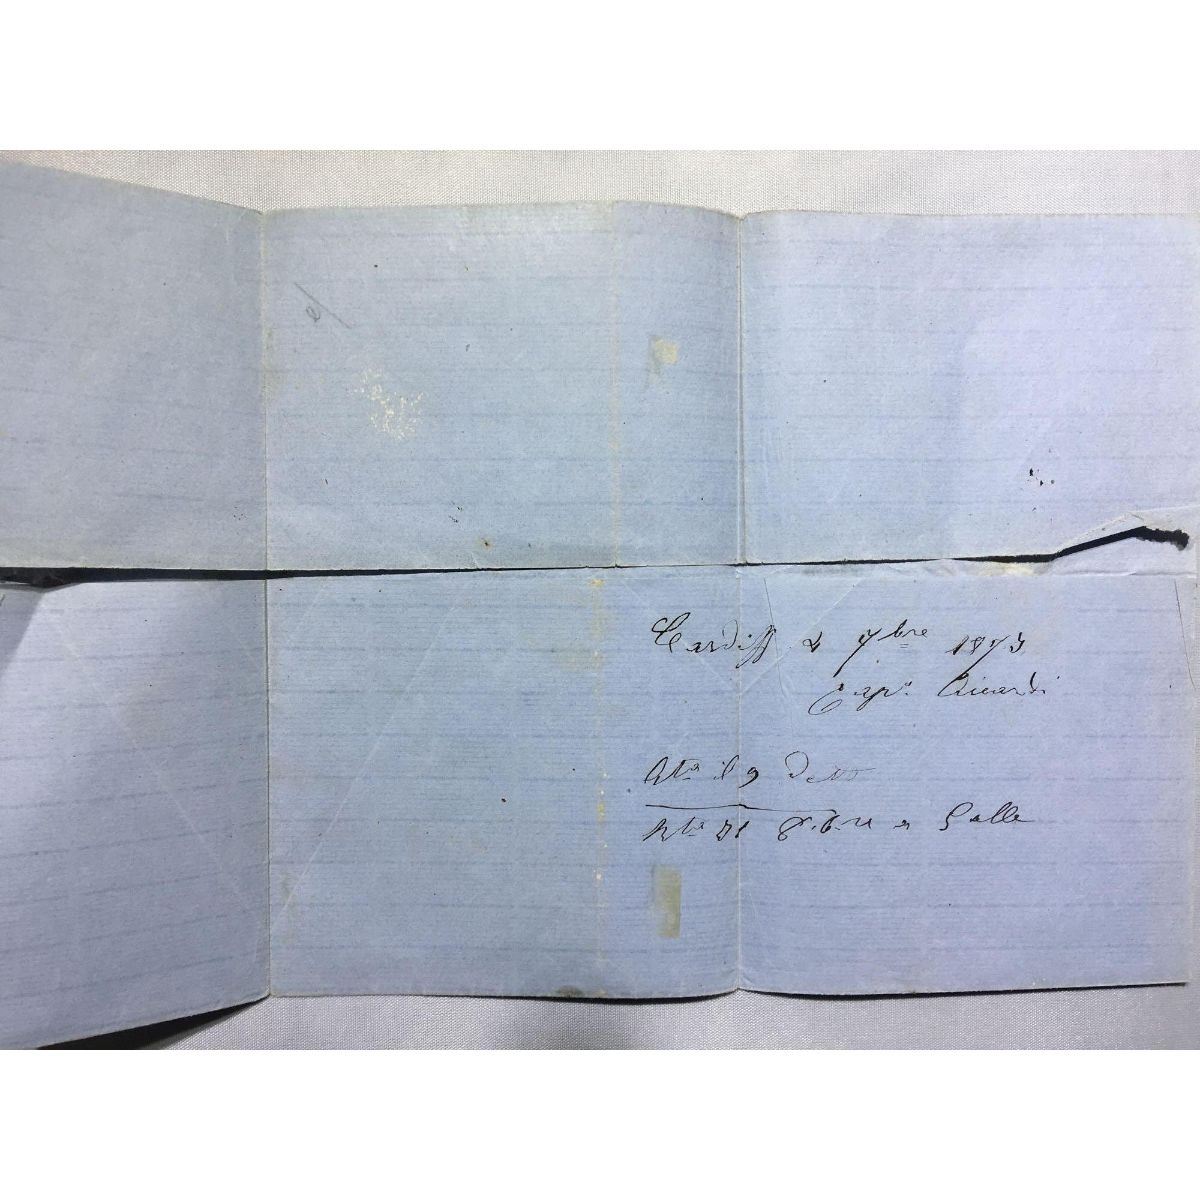 Cardiff 2 7bre 1873
Capn. Ricardi
il 9 Detto
21 8.bre a Galle